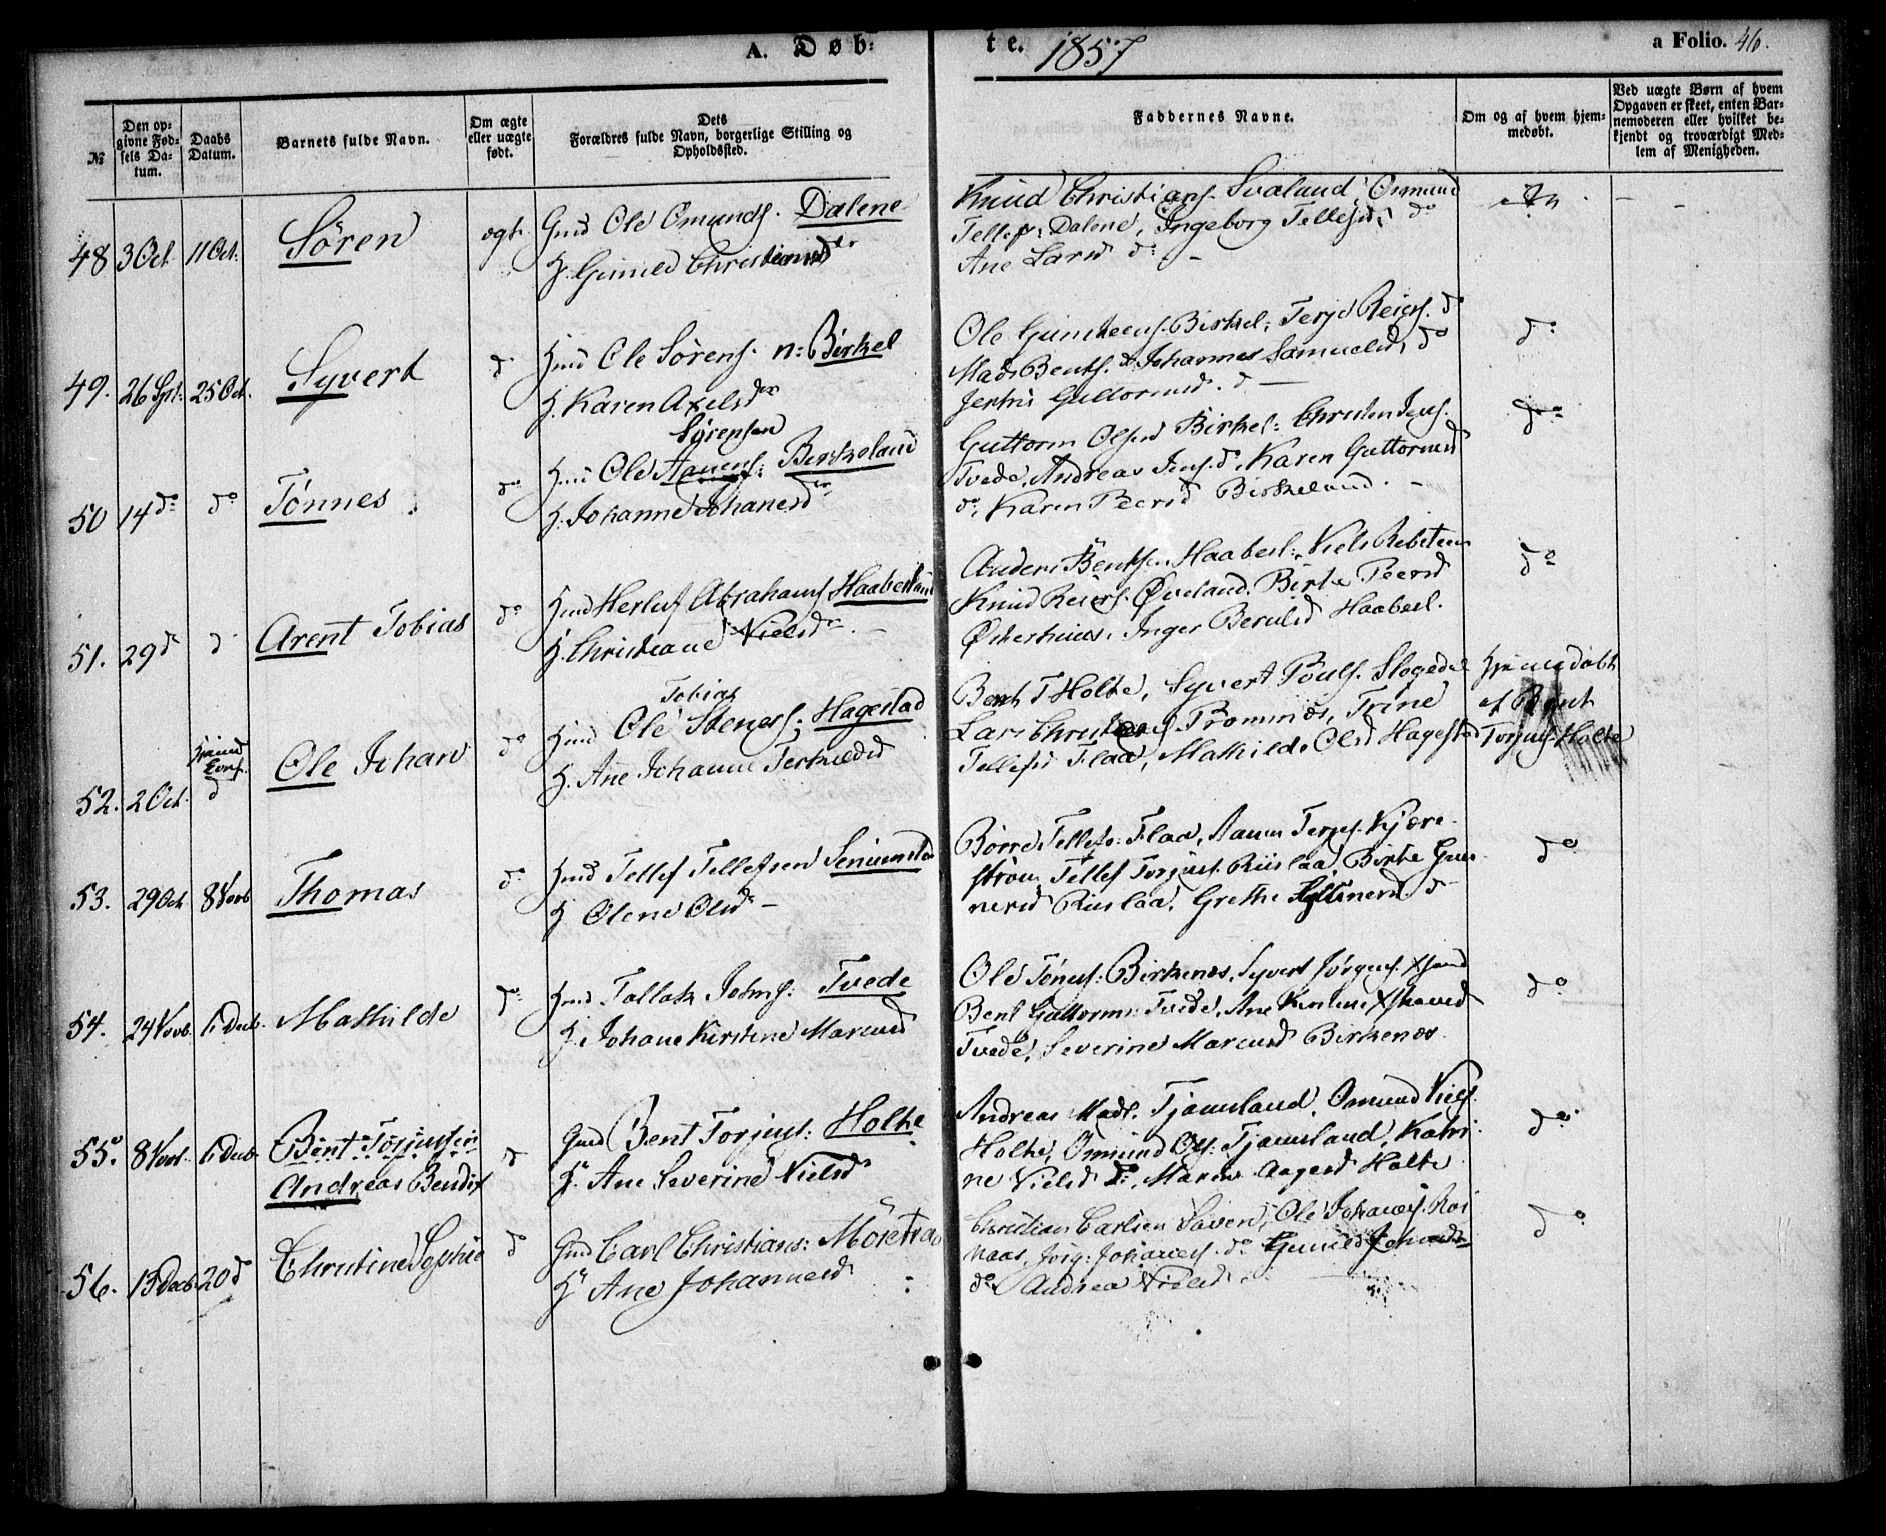 A. Døb-
te. 1857
a Folio. 46.
№
Den op-
givne Fød-
sels Da-
tum.
Daabs
Datum.
Barnets fulde Navn.
Om ægte
eller uægte
født.
Dets
Forældres fulde Navn, borgerlige Stilling og
Opholdssted.
Faddernes Navne.
Om og af hvem hjem-
medøbt.
Ved uægte Børn af hvem
Opgaven er skeet, enten Bar-
nemoderen eller hvilket be-
kjendt og troværdigt Med-
lem af Menigheden.
48 3 Oct. 11 Oct. Sören ægt.
Gmd Ole Omunds. Dalene
H. Gunild Christiansdr
Knud Christians. Svaland, Osmund
Tellefs: Dalene, Ingeborg Tellefsd, do
Ane Larsd do
49. 26 Spt. 25 Oct. Syvert d
Hmd Ole Sörens. n: Birkel
H. Karen Axelsdr
Ole Gundersen Birkel, Terje Reiers. do
Mads Bents. do Johannes Samuelsd, do
Jertru Guttormsd. d
do
50 14 do do Tönnes do
Sörensen
Hmd Ole Aanens: Berkeland
H. Johanne Johanesdr
Guttorm Olsen Birkel: Christen Jens.
Tvede, Andreas Jens. do, Karen Guttormsd
do, Karen Peersd Birkeland.
do
51. 29 d d Arent Tobias do
Hmd Herluf Abrahams Haabesland
H. Christiane Nielsdr
Anders Bentsen Haabesl:, Niels Rebsteen
Knud Reiers. Øveland, Birte Peersd
Østerhuus, Inger Berulsd Haabesl.
do
52. 2 Oct. d Ole Johan do
Tobias
Hmd Ole Steners; Hagestad
H. Ane Johanne Terkildsd
Bent T Holte, Syvert Pouls. Slogedal
Lars Christens Tromnes, Trine
Tellefsd Flaa, Mathilde Olsd Hagestad
Hjemmedöbt
af Bent
Torjus. Holte
53. 29 Oct 8 Novb Thomas d
Hmd Tellef Tellefsen Senumstad
H Olene Olsd
Börre Tellefs: Flaa, Aanen Terjes. Kjære-
ström Tellef Torjus. Riislaa, Birte Gun-
nersd Riislaa, Grethe d
do
54. 24 Novb. 6 Decb. Mathilde do
Hmd Tallak Johns: Tvede
H. Johane Kirstine Marcusd
Ole Tönes: Birkenes, Syvert Jörgens.
Bent Guttorms: Tvede, Ane Kirstine
Tvede, Severine Marcusd Birkenes.
do
55. 8 Novb. 6 Decb. Bent Torjussen
Andreas Bendix d
Gmd Bent Torjus: Holte
H. Ane Severine Nielsd
Andreas Mads. Tjamsland, Omund Niels
Holte, Omund Ols: Tjamsland, Katri-
ne Nielsd do, Maren Aagesd Holte
do
56. 13 Decb 20 d Christine Sophie d
Gmd Carl Christians: Möretraa
H Ane Johannesd
Christian Carlsen Saven, Ole Johanes. Ros
naas, Jörg: Johanes. do Gunild
do Andrea Nielsd
do